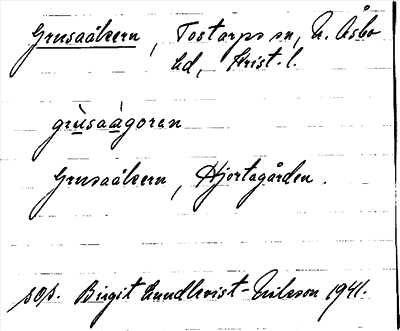 Grusaåkern, Tostarps sn, N. Åsbo
hd, Krist. l.
grùsaågoren
Grusaåkern, Hjortagården.
sos. Birgit Lundkvist-Nilsson 1941.